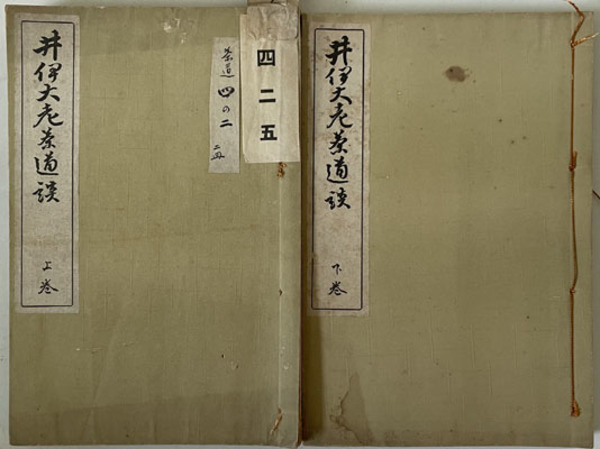 井伊大老茶道談
上巻
茶道 四の二
二冊
四二五
井伊大老茶道談
下巻